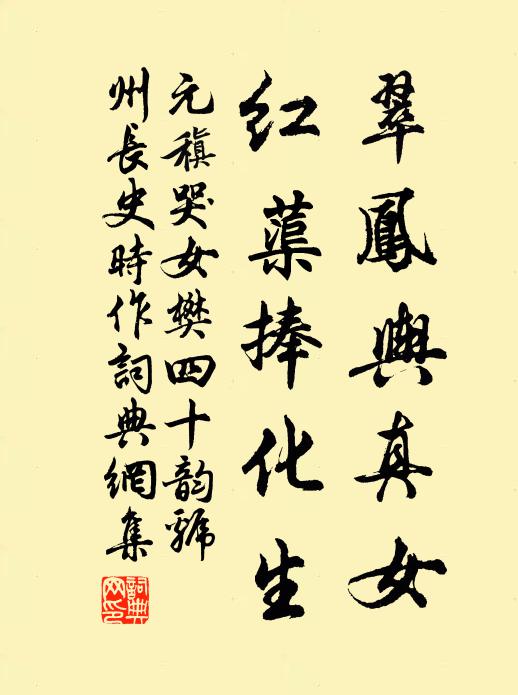 翠鳳輿真女
紅蕖捧化生
元稹哭女樊四十韵虢
州長史時作詞典網集
詞典網印